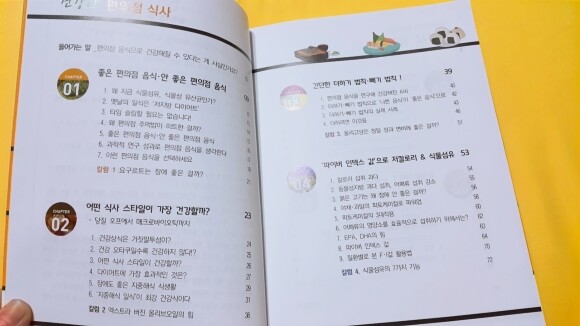 건강한 편의점 식사
들어가는 말_편의점 음식으로 건강해질 수 있다는 게 사실인가요?
CHAPTER
01
좋은 편의점 음식·안 좋은 편의점 음식
1. 왜 지금 식물섬유, 식물성 유산균인가?
2. 옛날의 일식은 '저지방 다이어트'
3. 타임 슬립할 필요는 없습니다!
4. 왜 편의점 주먹밥이 히트한 걸까?
5. 좋은 편의점 음식·안 좋은 편의점 음식
6. 과학적 연구 성과로 편의점 음식을 생각한다
7. 이런 편의점 음식을 선택하세요
칼럼 1 요구르트는 장에 좋은 걸까?
CHAPTER
02
어떤 식사 스타일이 가장 건강할까? 23
- 당질 오프에서 매크로바이오틱까지
1. 건강상식은 거짓말투성이?
2. 건강 오타쿠일수록 건강하지 않다? 24
3. 어떤 식사 스타일이 건강할까? 26
4. 다이어트에 가장 효과적인 것은? 28
5. 장에도 좋은 지중해식 식생활
6. '지중해식 일식'이 최강 건강식이다
칼럼 2 엑스트라 버진 올리브오일의 힘 36
간단한 더하기 법칙·빼기 법칙! 39
1. 편의점 음식을 연구해 건강해진
2. 더하기·빼기 법칙으로 '나쁜 음식'이 '좋은 음식'으로
3. 더하기·빼기 법칙의 실제 사례
4. 더하려면 이것을
칼럼 3. 올리고당은 정말 장과 변비에 좋은 걸까?
04
'파이버 인덱스 값'으로 저칼로리 & 식물섬유 53
1. 칼로리 섭취 과다
2. 동물성지방 과다 섭취, 어패류 섭취 감소
3. 붉은 고기는 왜 장에 안 좋은 걸까?
4. 야채·과일의 피토케미칼로 파워업
5. 피토케미칼의 3대작용
6. 어패류의 영양소를 효율적으로 섭취하기 위해서는?
7. EPA, DHA의 힘
8. 파이버 인덱스 값
9. 질환별로 본 F·I값 활용법 70
칼럼 4. 식물섬유의 7가지 기능 72